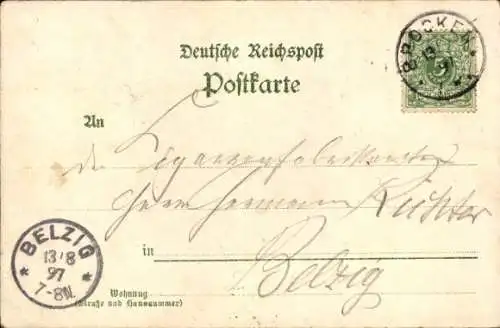 BROCKEN
13
5
Deutsche Reichspost
Postkarte
An
den Cigarrenfabrikanten
Herrn Hermann Richter
in Belzig
BELZIG
13/8
97
7-8N.
Wohnung
(Straße und Hausnummer)